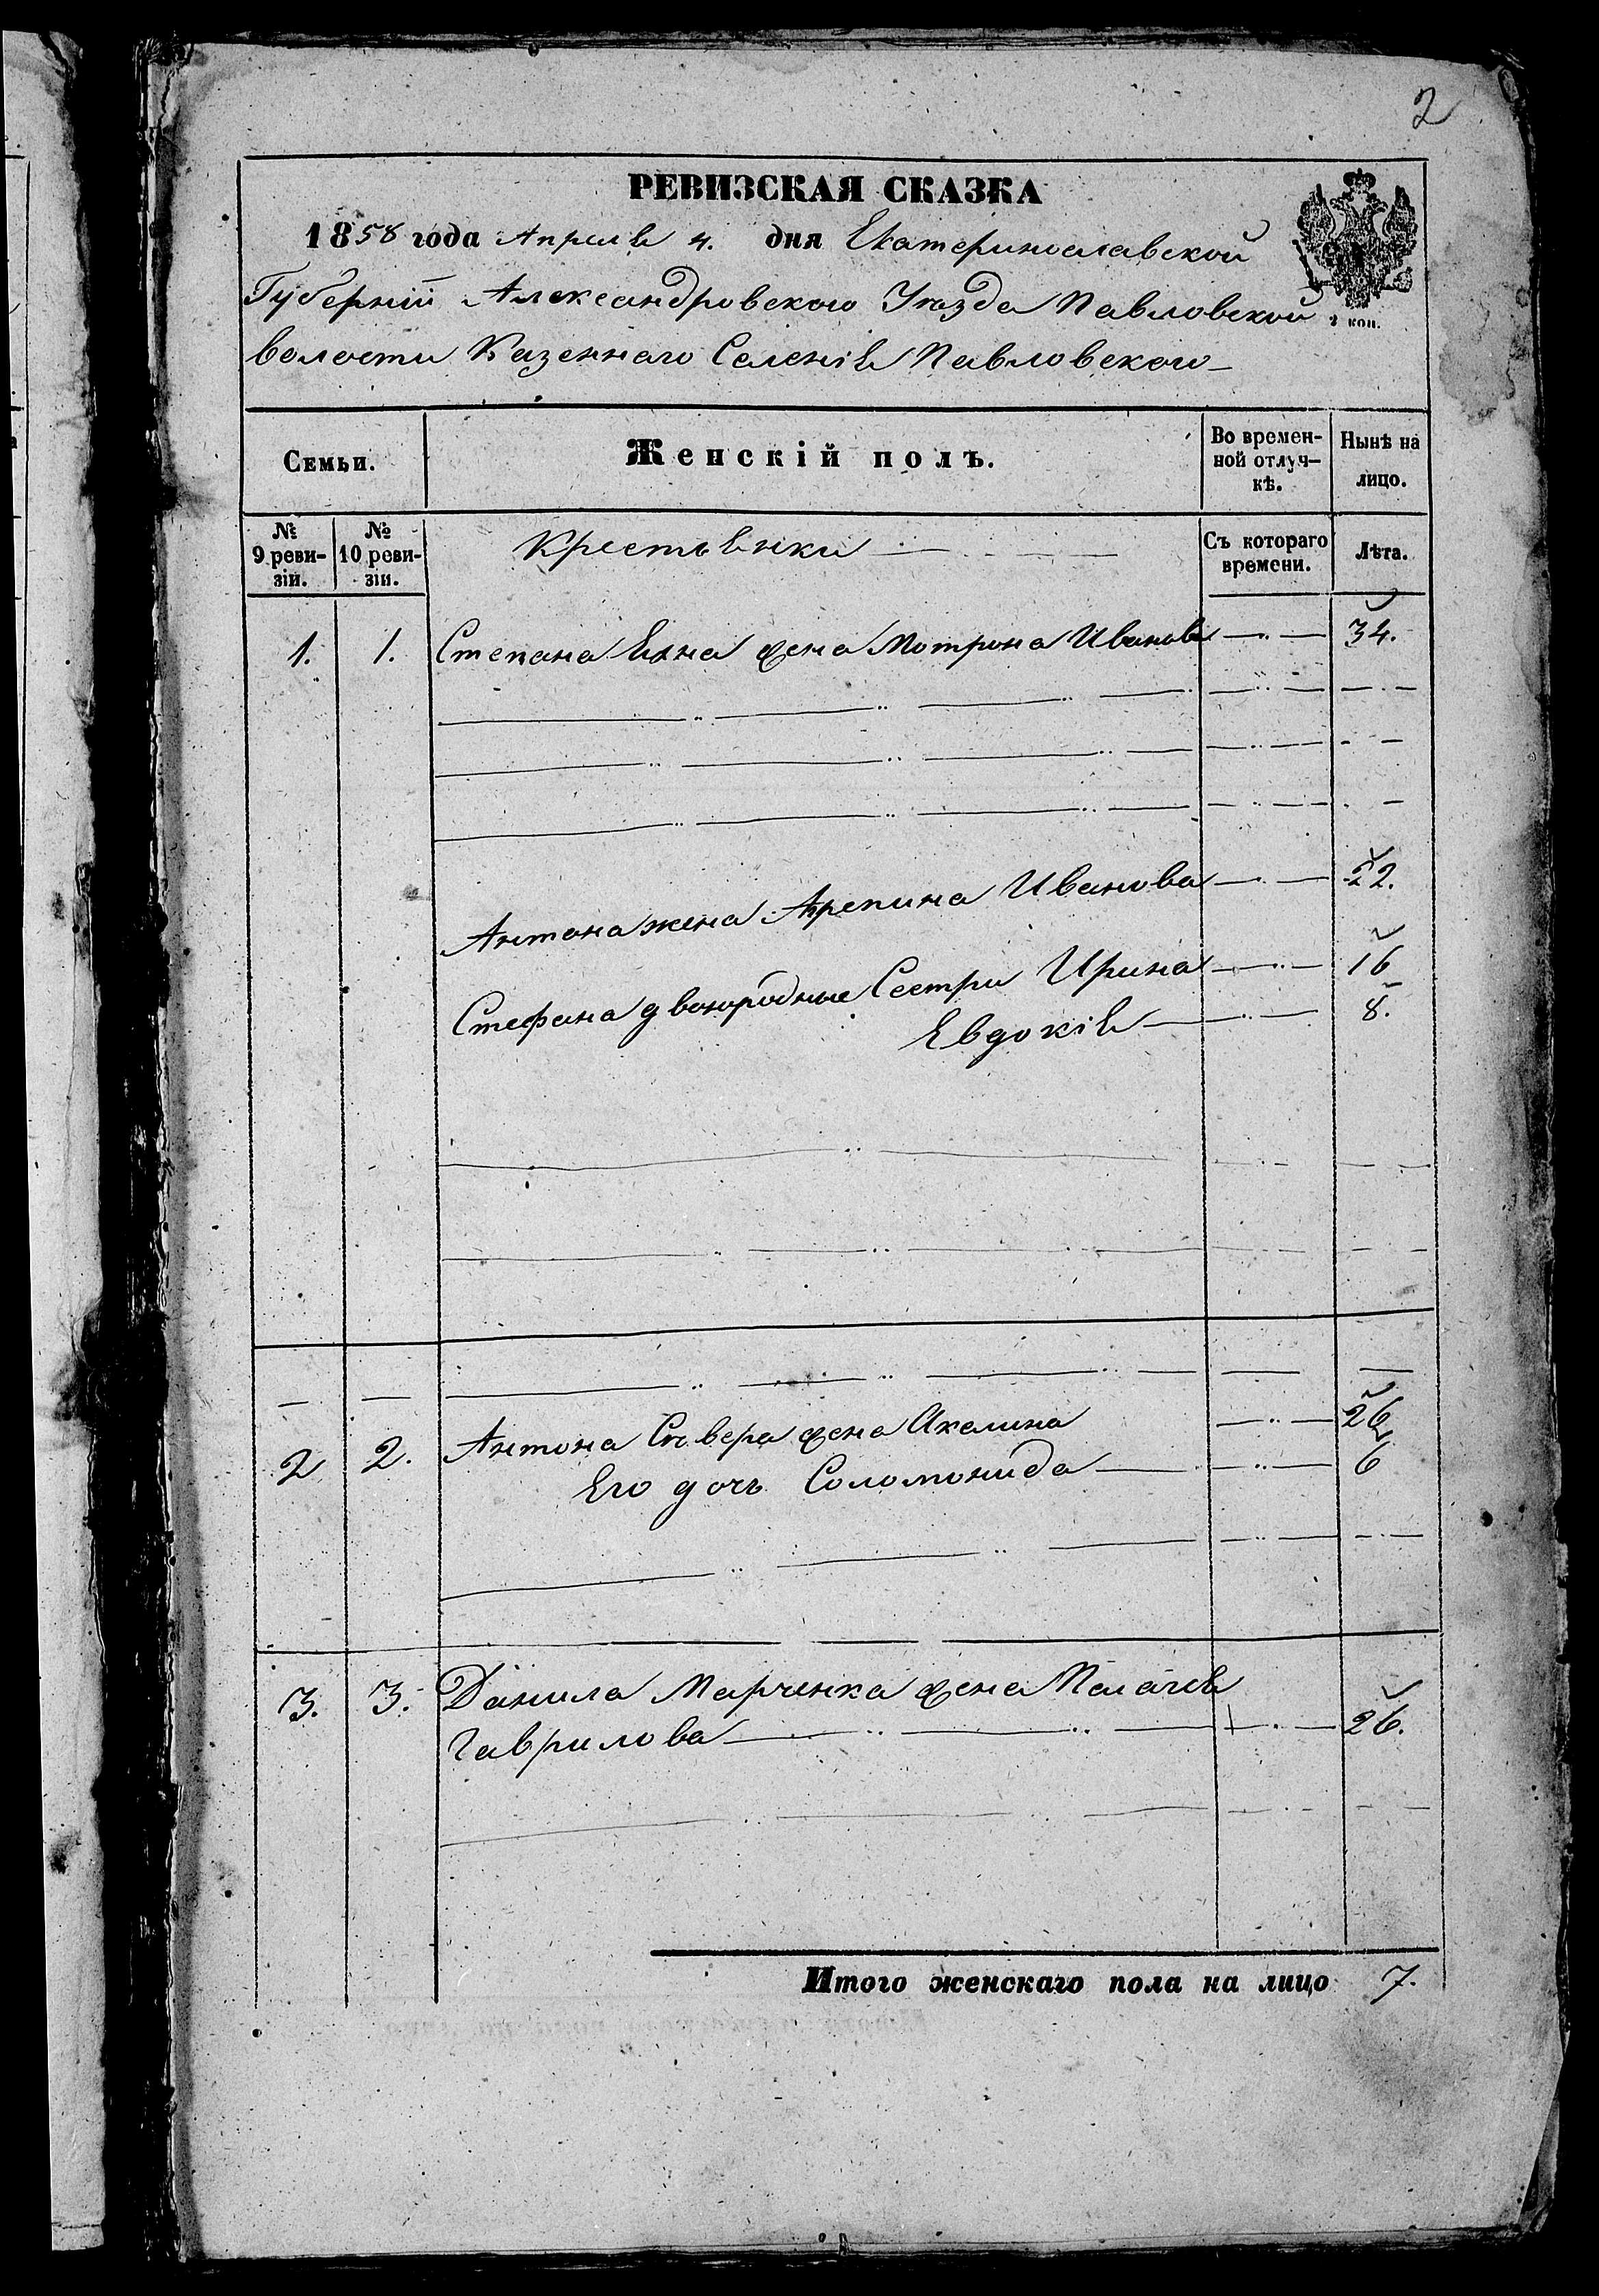 2
РЕВИЗСКАЯ СКАЗКА
1858 года Апреля 4. дня Екатеринославской
Губерніи Александровского Уезда Павловской
2 коп.
волости Казеннаго Селенія Павловского
Семьи.
Женскій полъ.
Во времен-
ной отлуч-
кѣ.
Нынѣ на
лицо.
№ 9 реви-
зіи.
№ 10 реви-
зіи.
Крестьянки
Съ котораго
времени.
Лѣта.
1. 1. Степана жена Мотрона Иванова 34.
Антона жена Агрепина Иванова 22.
Стефана двоюродные Сестри Ирина 16
Евдокія 8.
2 2. Антона жена Акелина 26
Его дочь Соломонида 6
3. 3. Данила Марченка жена Пелагея
Гаврилова 26.
Итого женскаго пола на лицо 7.